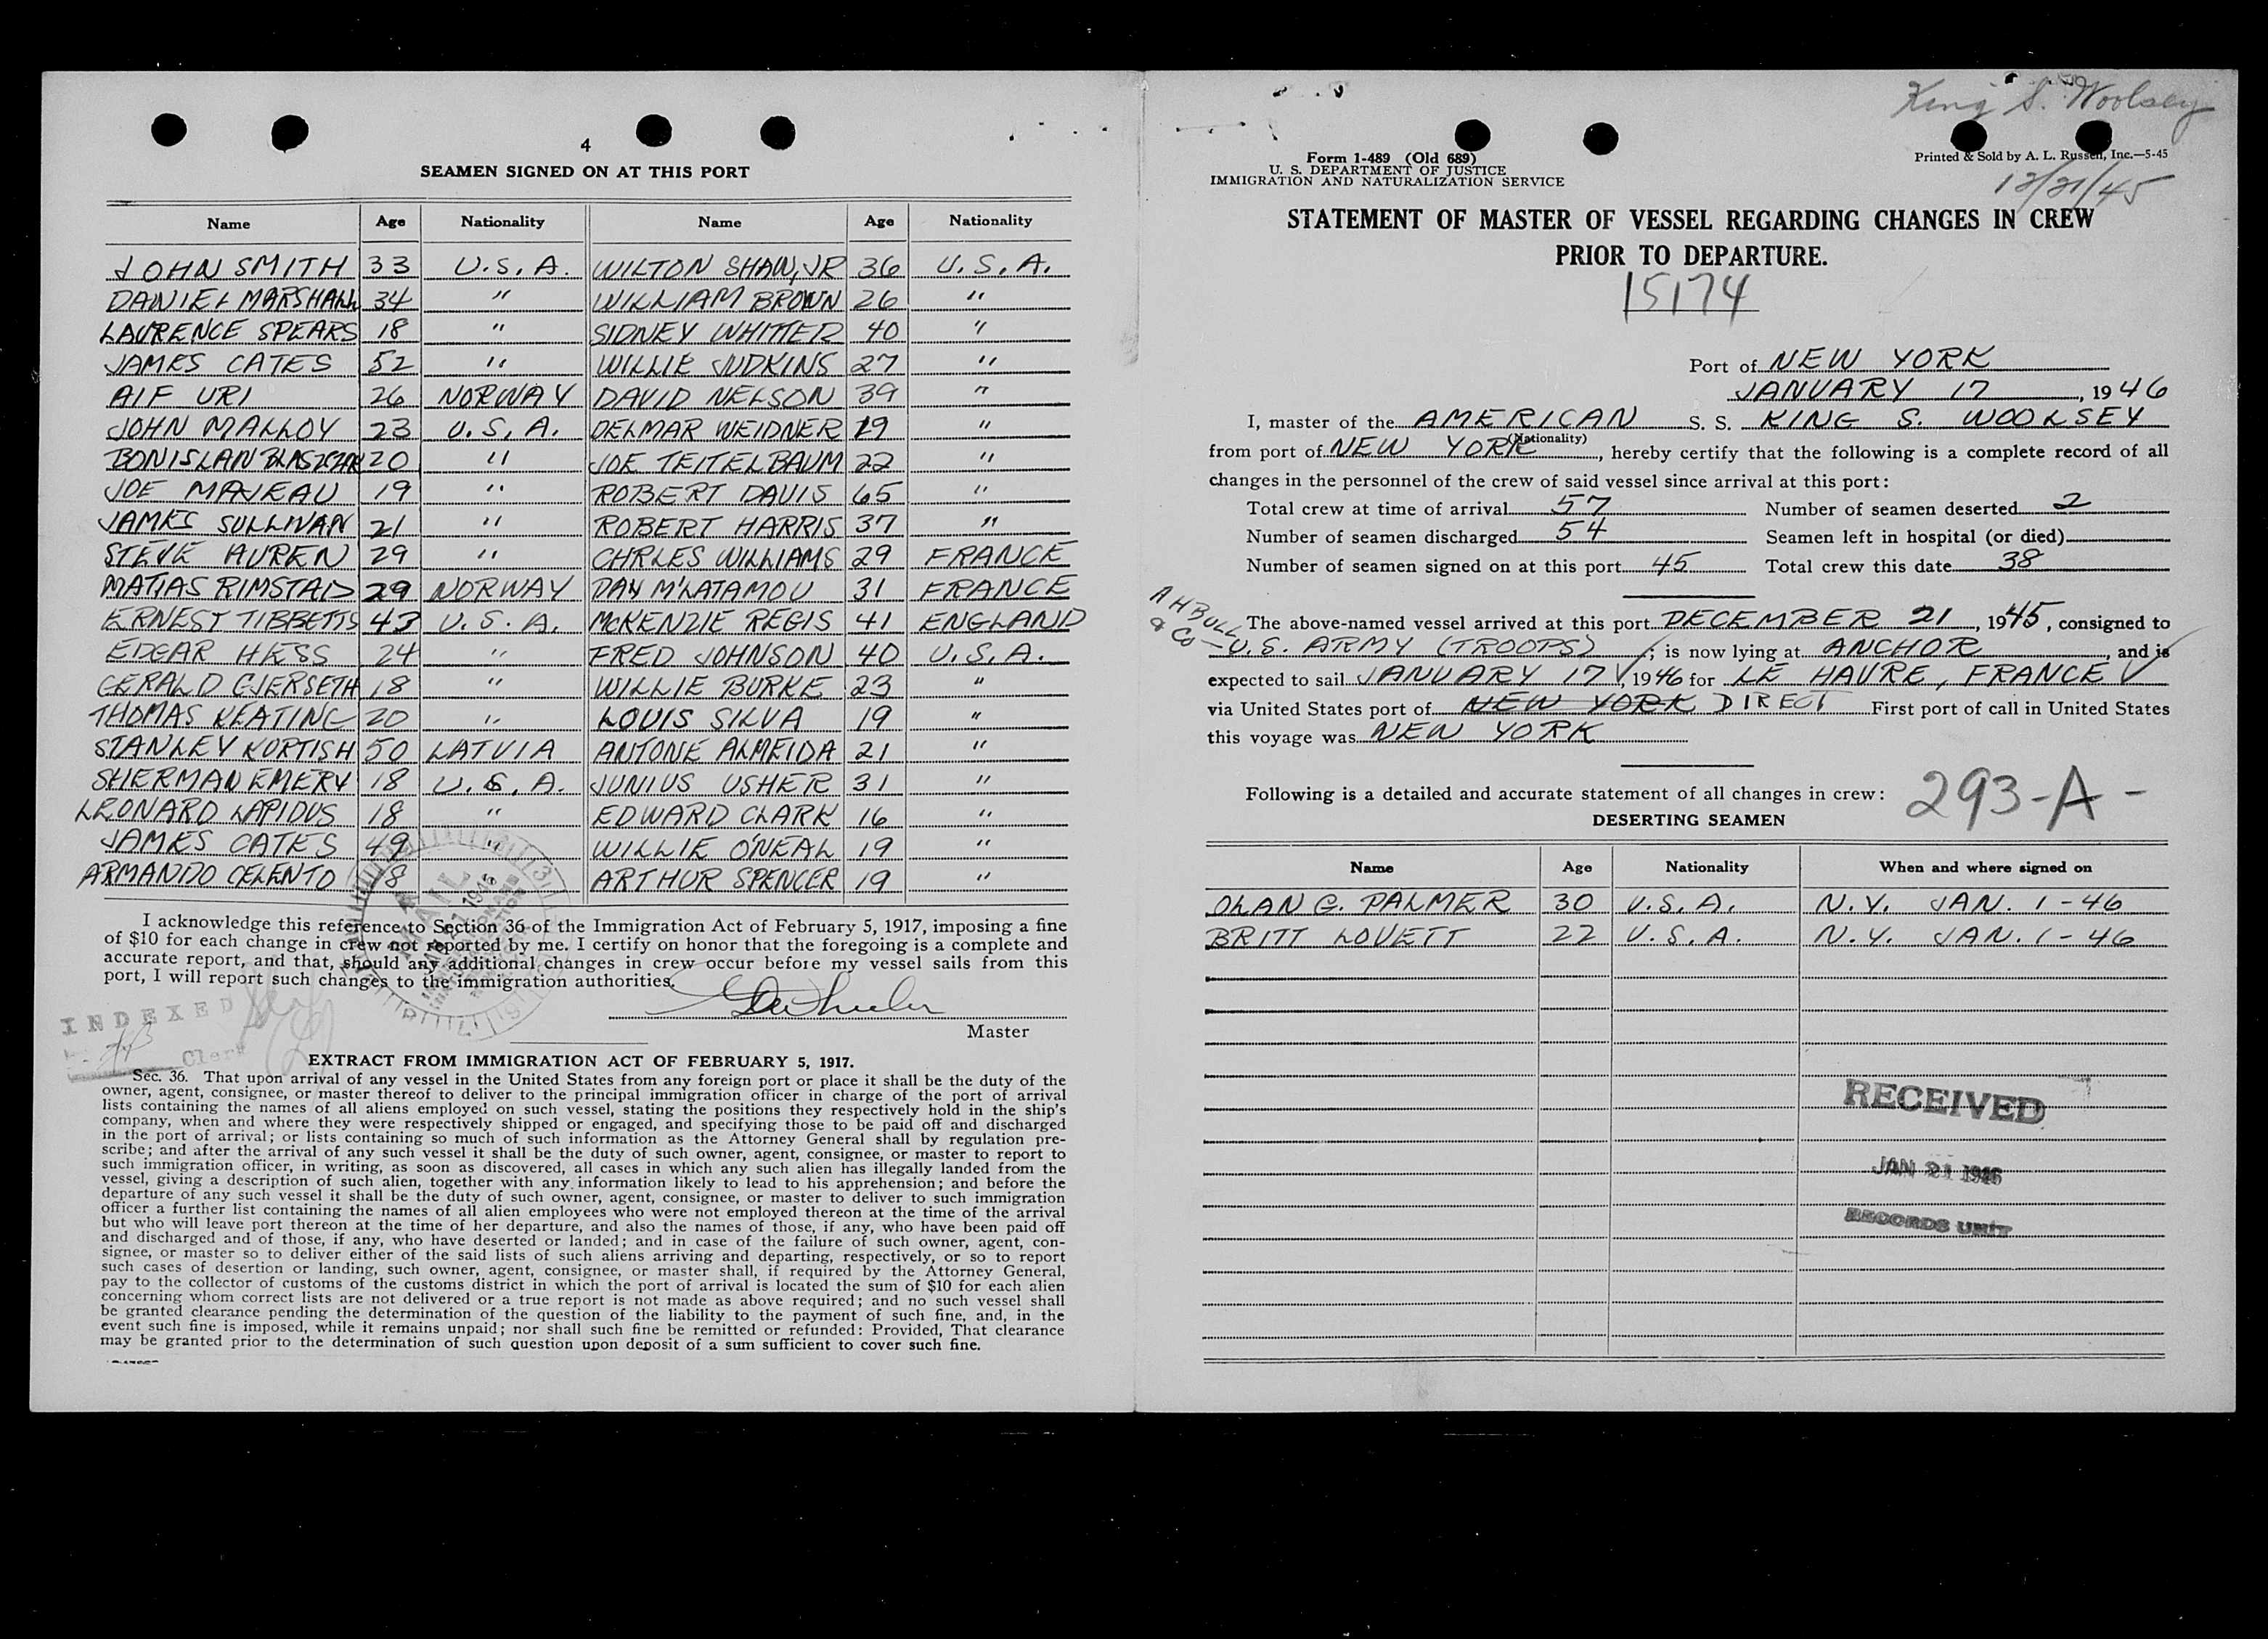 4
SEAMEN SIGNED ON AT THIS PORT
Name Age Nationality Name Age Nationality
JOHN SMITH 33 U.S.A. WILTON SHAW, JR 36 U.S.A.
DANIEL MARSHALL 34 " WILLIAM BROWN 26 "
LAURENCE SPEARS 18 " SIDNEY WHITTER 40 "
JAMES CATES 52 " WILLIE JUDKINS 27 "
AIF URI 26 NORWAY DAVID NELSON 39 "
JOHN MALLOY 23 U.S.A. DELMAR WEIDNER 19 "
BONISLAN 20 " JOE TEITELBAUM 22 "
JOE MAJEAU 19 " ROBERT DAVIS 65 "
JAMES SULLIVAN 21 " ROBERT HARRIS 37 "
STEVE AUREN 29 " CHRLES WILLIAMS 29 FRANCE
MATIAS RIMSTAD 29 NORWAY DAY M'LATAMOU 31 FRANCE
ERNEST TIBBETTS 43 U.S.A. McKENZIE REGIS 41 ENGLAND
EDGAR HESS 24 " FRED JOHNSON 40 U.S.A.
GERALD GJERSETH 18 " WILLIE BURKE 23 "
THOMAS KEATING 20 " LOUIS SILVA 19 "
STANLEY KORTISH 50 LATVIA ANTONE ALMEIDA 21 "
SHERMAN EMERY 18 U.S.A. JUNIUS USHER 31 "
LEONARD LAPIDUS 18 " EDWARD CLARK 16 "
JAMES CATES 49 " WILLIE O'NEAL 19 "
ARMANDO CELENTO 18 ARTHUR SPENCER 19 "
I acknowledge this reference to Section 36 of the Immigration Act of February 5, 1917, imposing a fine
of $10 for each change in crew not reported by me. I certify on honor that the foregoing is a complete and
accurate report, and that, should any additional changes in crew occur before my vessel sails from this
port, I will report such changes to the immigration authorities.
INDEXED
Clerk
Master
EXTRACT FROM IMMIGRATION ACT OF FEBRUARY 5, 1917.
Sec. 36. That upon arrival of any vessel in the United States from any foreign port or place it shall be the duty of the
owner, agent, consignee, or master thereof to deliver to the principal immigration officer in charge of the port of arrival
lists containing the names of all aliens employed on such vessel, stating the positions they respectively hold in the ship's
company, when and where they were respectively shipped or engaged, and specifying those to be paid off and discharged
in the port of arrival; or lists containing so much of such information as the Attorney General shall by regulation pre-
scribe; and after the arrival of any such vessel it shall be the duty of such owner, agent, consignee, or master to report to
such immigration officer, in writing, as soon as discovered, all cases in which any such alien has illegally landed from the
vessel, giving a description of such alien, together with any information likely to lead to his apprehension; and before the
departure of any such vessel it shall be the duty of such owner, agent, consignee, or master to deliver to such immigration
officer a further list containing the names of all alien employees who were not employed thereon at the time of the arrival
but who will leave port thereon at the time of her departure, and also the names of those, if any, who have been paid off
and discharged and of those, if any, who have deserted or landed; and in case of the failure of such owner, agent, con-
signee, or master so to deliver either of the said lists of such aliens arriving and departing, respectively, or so to report
such cases of desertion or landing, such owner, agent, consignee, or master shall, if required by the Attorney General,
pay to the collector of customs of the customs district in which the port of arrival is located the sum of $10 for each alien
concerning whom correct lists are not delivered or a true report is not made as above required; and no such vessel shall
be granted clearance pending the determination of the question of the liability to the payment of such fine, and, in the
event such fine is imposed, while it remains unpaid; nor shall such fine be remitted or refunded: Provided, That clearance
may be granted prior to the determination of such question upon deposit of a sum sufficient to cover such fine.
King S. Woolsey
Form 1-489 (Old 689)
U. S. DEPARTMENT OF JUSTICE
IMMIGRATION AND NATURALIZATION SERVICE
Printed & Sold by A. L. Russell, Inc.—5-45
12/21/45
STATEMENT OF MASTER OF VESSEL REGARDING CHANGES IN CREW
PRIOR TO DEPARTURE.
15174
Port of NEW YORK
JANUARY 17, 1946
I, master of the AMERICAN S. S. KING S. WOOLSEY
(Nationality)
from port of NEW YORK, hereby certify that the following is a complete record of all
changes in the personnel of the crew of said vessel since arrival at this port:
Total crew at time of arrival 57 Number of seamen deserted 2
Number of seamen discharged 54 Seamen left in hospital (or died)
Number of seamen signed on at this port 45 Total crew this date 38
A H BULL
& Co
The above-named vessel arrived at this port DECEMBER 21, 1945, consigned to
U.S. ARMY (TROOPS); is now lying at ANCHOR, and is
expected to sail JANUARY 17, 1946 for LE HAVRE, FRANCE
via United States port of NEW YORK DIRECT First port of call in United States
this voyage was NEW YORK
Following is a detailed and accurate statement of all changes in crew:
293-A-
DESERTING SEAMEN
Name Age Nationality When and where signed on
OLAN G. PALMER 30 U.S.A. N.Y. JAN. 1-46
BRITT LOVETT 22 U.S.A. N.Y. JAN. 1-46
RECEIVED
JAN 21 1946
RECORDS UNIT